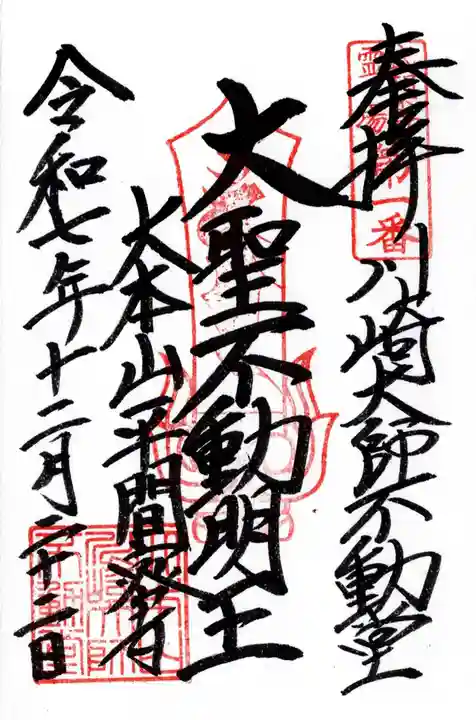 奉拝 川崎大師不動堂
霊場第一番
大聖不動明王
大本山平間寺
令和七年十二月二十二日